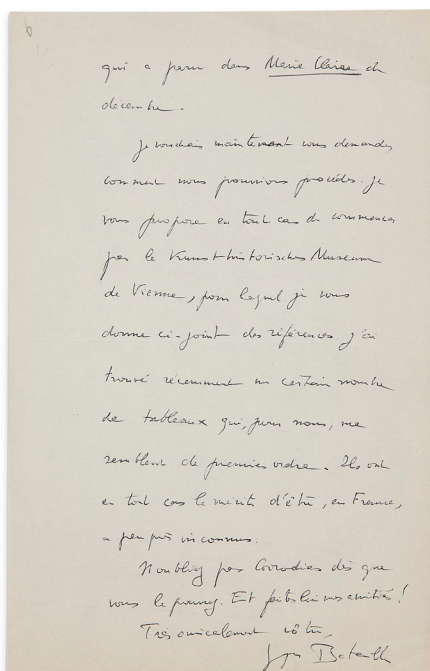 qui a paru dans Marie Claire de
décembre.
Je voudrais maintenant vous demander
comment nous pourrions procéder. Je
vous propose en tout cas de commencer
par le Kunsthistorisches Museum
de Vienne, pour lequel je vous
donne ci-joint des références. J'ai
trouvé récemment un certain nombre
de tableaux qui, pour nous, me
semblent de premier ordre. Ils ont
en tout cas le mérite d'être, en France,
à peu près inconnus.
N'oubliez pas dès que
vous le pourrez. Et faites lui nos amitiés!
Très amicalement vôtre,
Georges Bataille